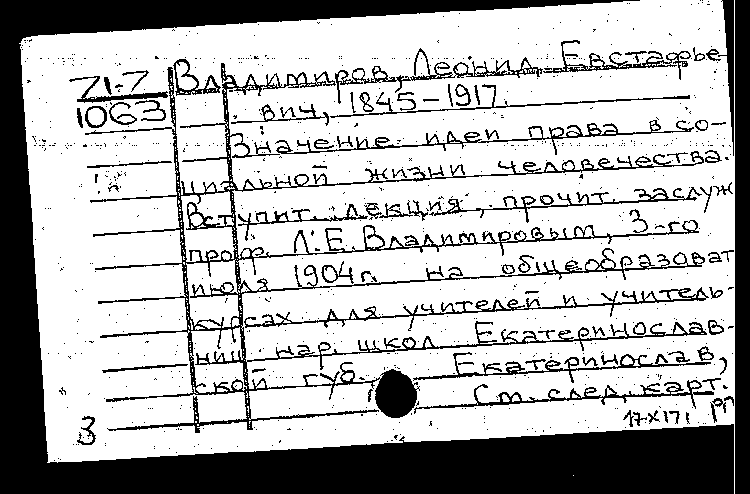 71-7
1063
Владимиров, Леонид Евстафье-
вич, 1845-1917.
Значение идеи права в со-
циальной жизни человечества.
Вступит. лекция, прочит. заслуж
проф. Л.Е. Владимировым, 3-го
июля 1904 г. на общеобразоват
курсах для учителей и учитель-
ниц нар. школ Екатеринослав-
ской губ. Екатеринослав,
См. след. карт.
З